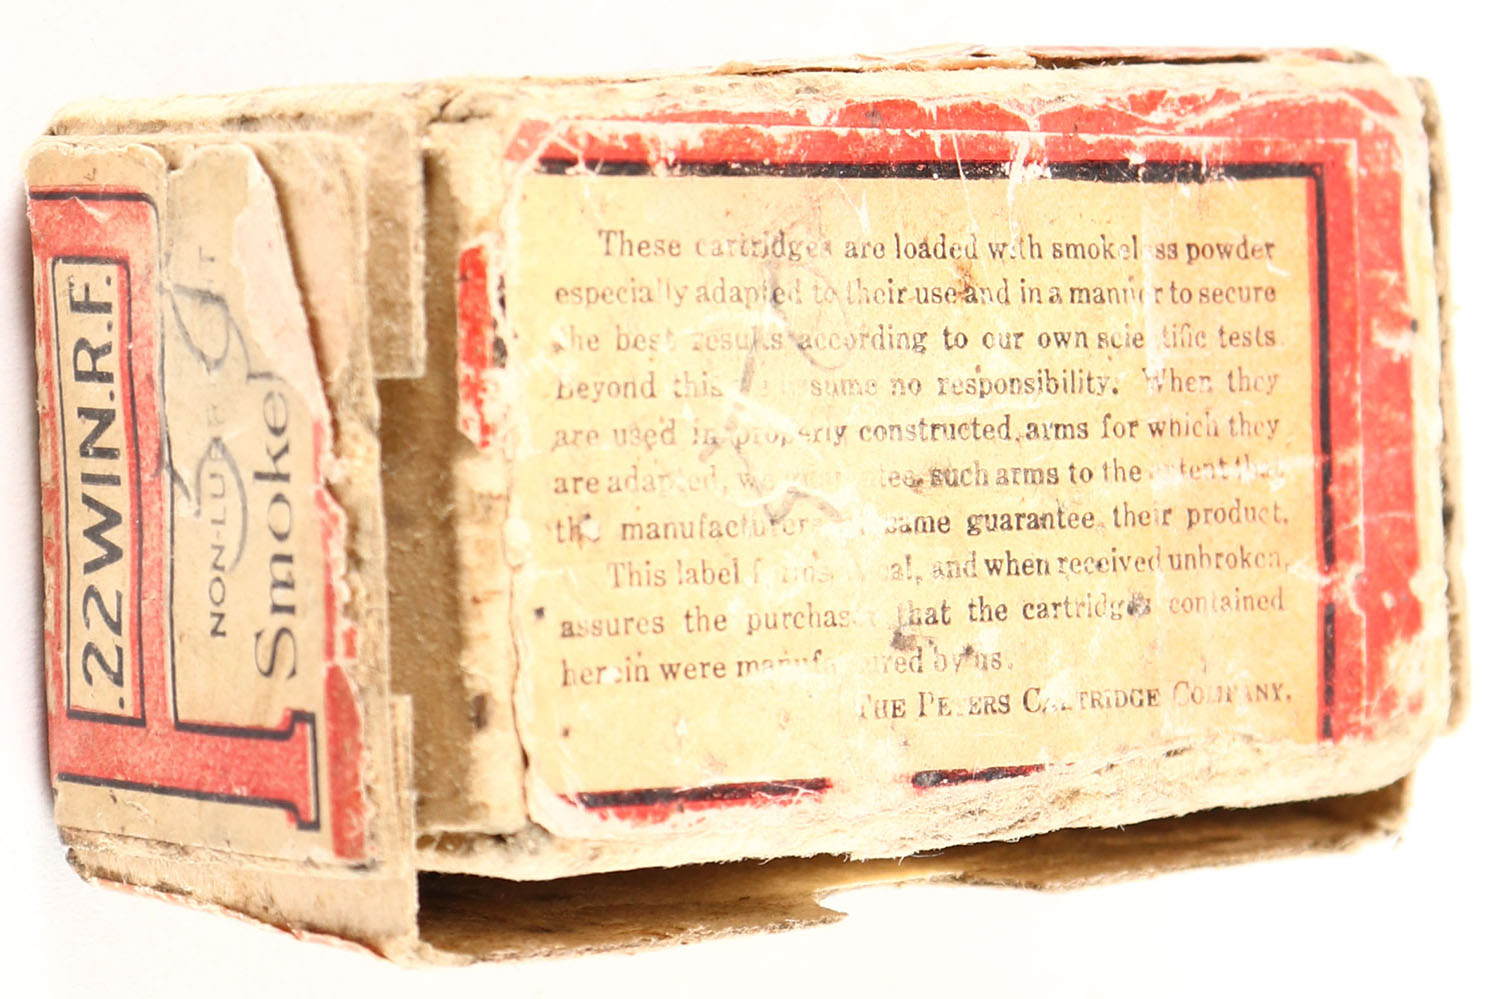 .22 WIN.R.F.
NON-LUBR
Smokel
These cartridges are loaded with smokeless powder
especially adapted to their use and in a manner to secure
the best results according to our own scientific tests.
Beyond this we assume no responsibility. When they
are used in properly constructed arms for which they
are adapted, we guarantee such arms to the extent that
the manufacturers same guarantee their product.
This label and when received unbroken,
assures the purchaser that the cartridges contained
herein were manufactured by us.
THE PETERS CARTRIDGE COMPANY.